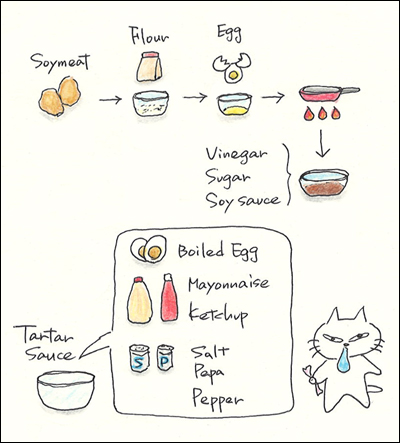 Flour
Egg
Soymeat
Vinegar
Sugar
Soy sauce
Boiled Egg
Mayonnaise
Ketchup
Tartar
Sauce
S P
Salt
Papa
Pepper